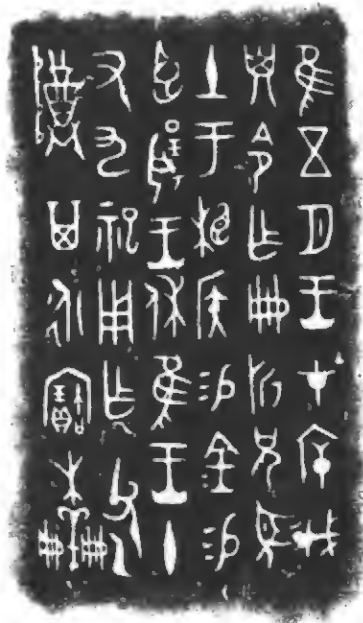 隹五月王才厈戊
子令乍冊折兄望
土于相侯易金易
臣揚王休隹王十
又九祀用乍父乙
尊其永寶木羊冊